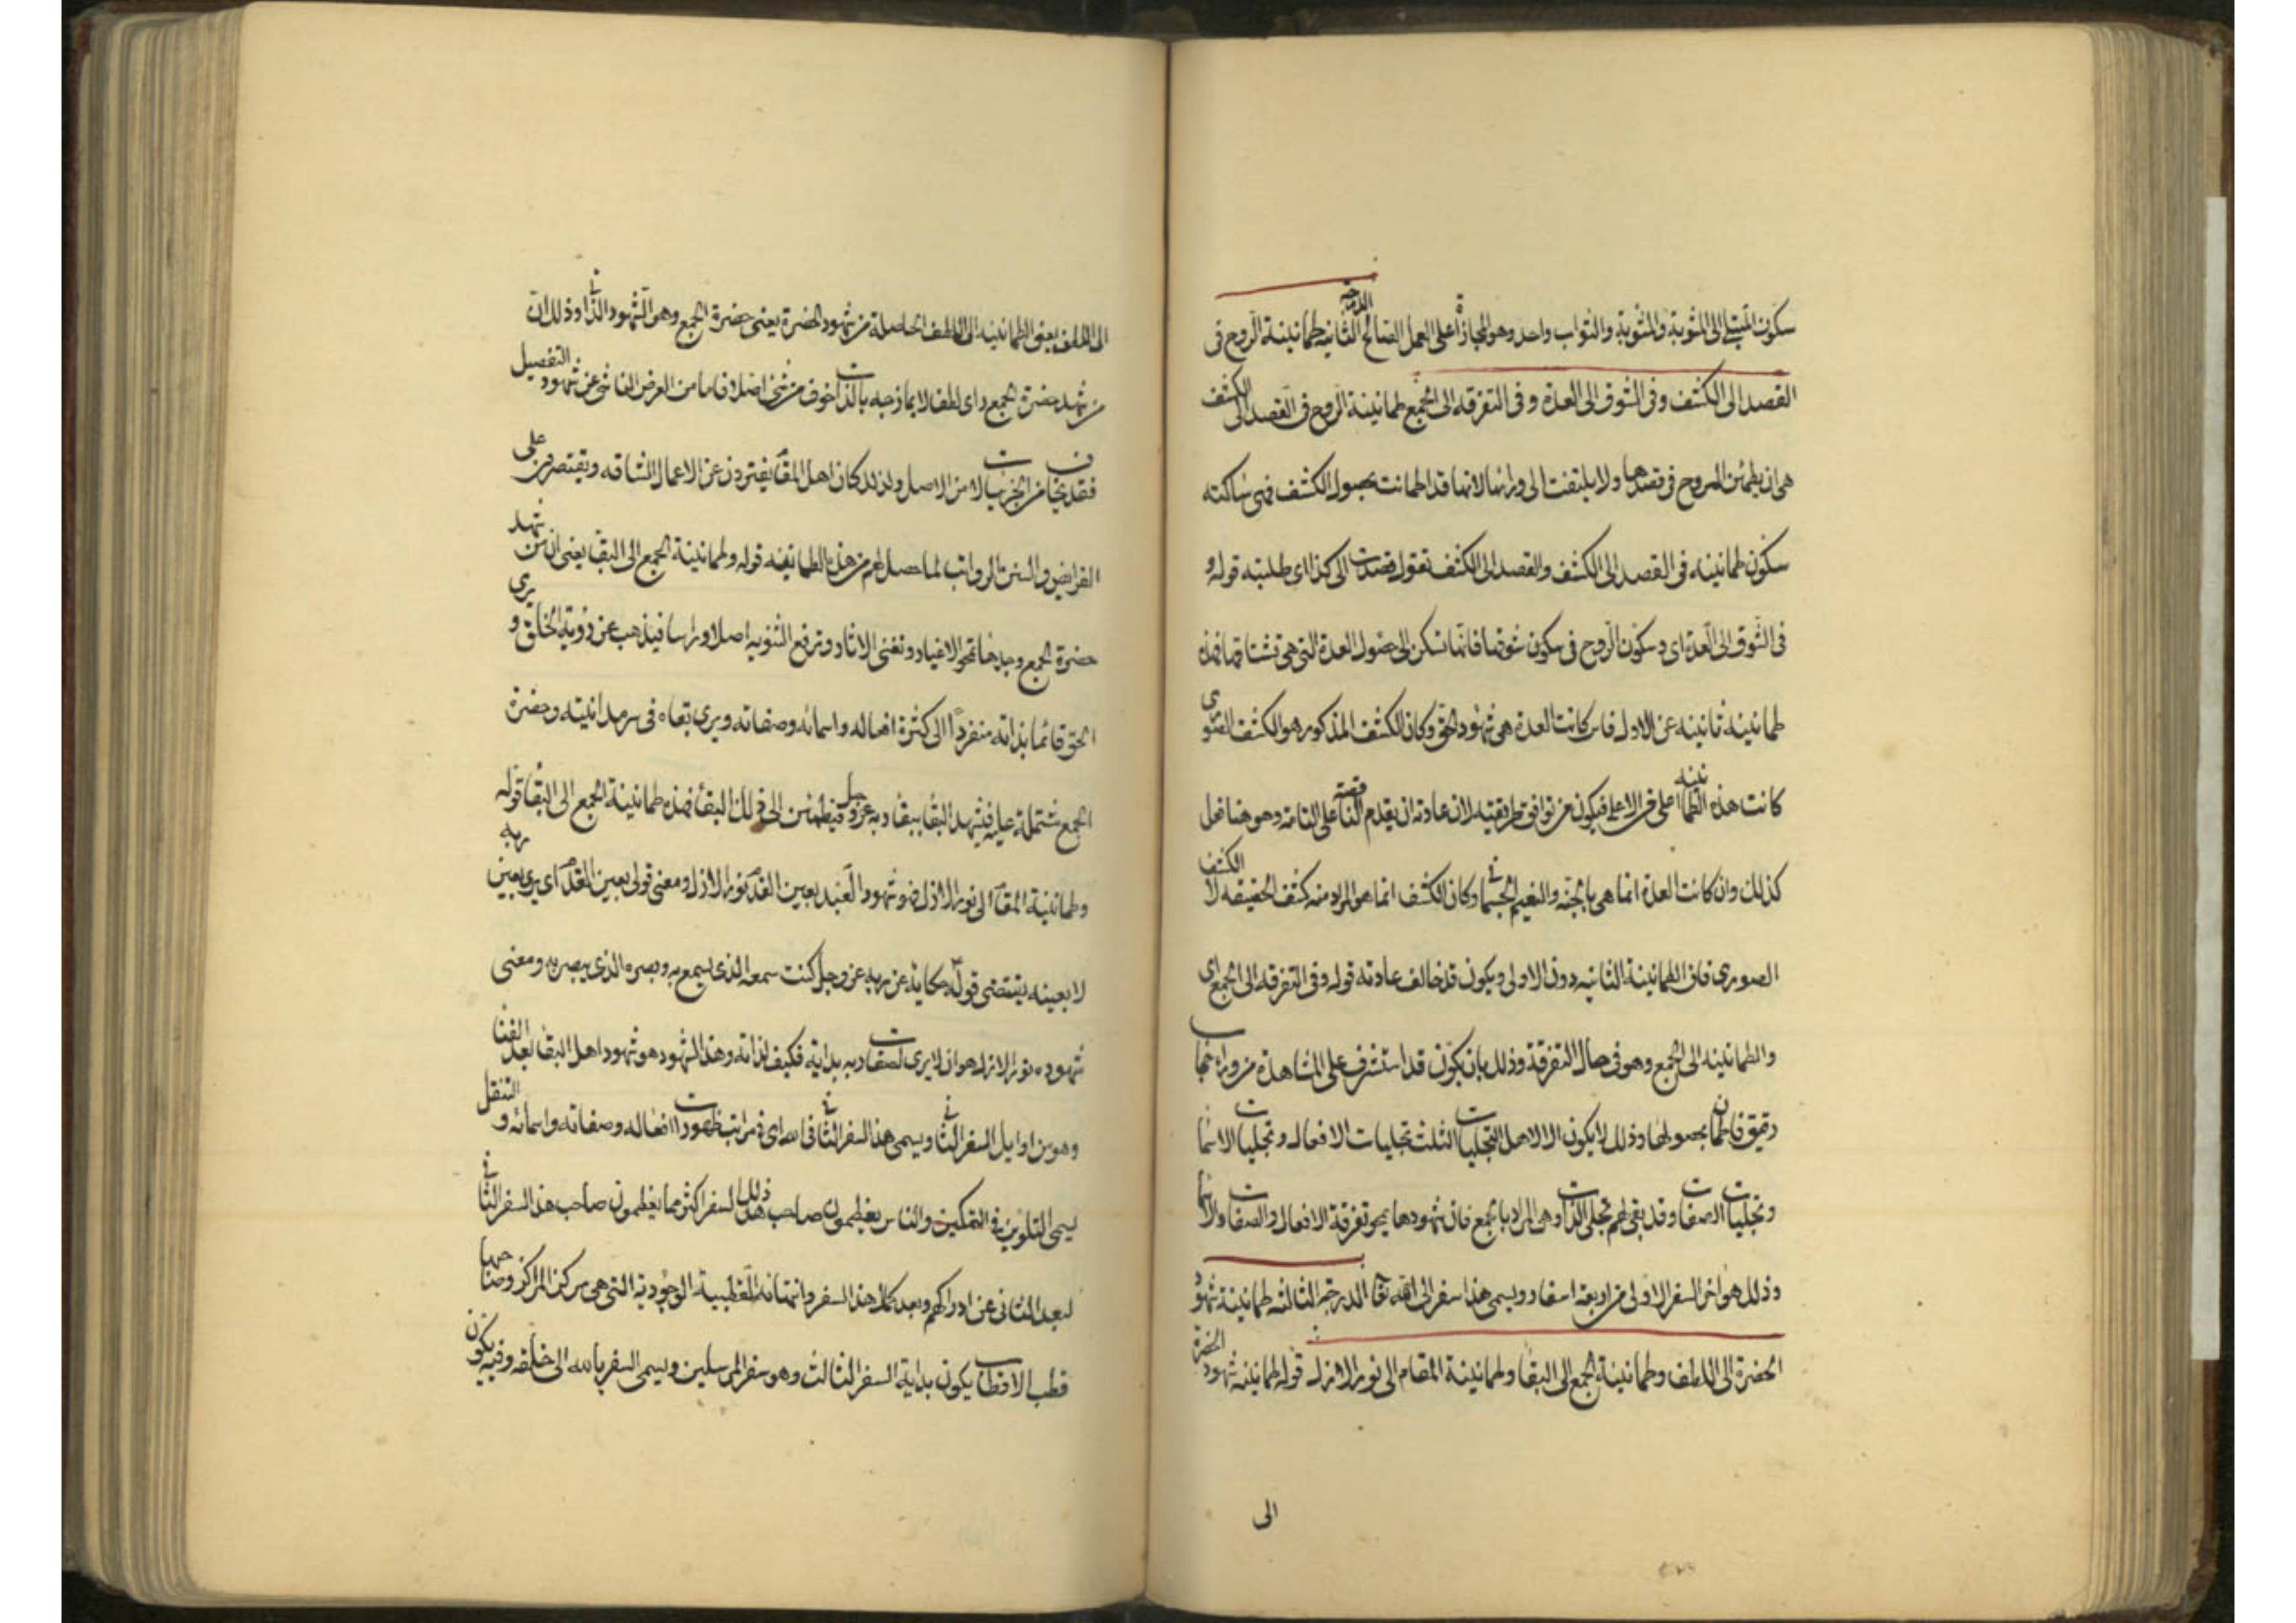 سكون المبتلى الى المثوبة والمثوبة والثواب واحد وهو المجازاة على العمل الصالح الدرجة الثانيه طمانينة الروح فى
القصد الى الكشف وفى الشوق الى العدة وفى التفرقه الى الجمع طمانينة الروح فى القصد الى الكشف
هى ان يطمئن الروح فى قصدها ولا يلتفت الى ورائها لانها قد اطمانت بحصول الكشف فهى ساكنه
سكون طمانينه فى القصد الى الكشف والقصد الى الكشف تقول قصدت الى كذا اى طلبته قوله و
فى الشوق الى العدة اى وسكون الروح فى سكون شوقها فانها تسكن الى حصول العدة التى هى تشتاقها فهذه
طمانينة ثانيه عن الاول فان كانت العدة هى شهود الحق وكان الكشف المذكور هو الكشف الصورى
كانت هذه الطمانينه اعلى فيكون من توافق طريقته لان عادته ان يقدم الناقصة على التامة وهو هنا فعل
كذلك وان كانت العدة انما هى بالجنه والنعيم الجسمانى وكان الكشف انما هو المراد منه كشف الحقيقه لا الكشف
الصورى فان الطمانينة الثانيه دون الاولى ويكون قد خالف عادته قوله وفى التفرقه الى الجمع اى
والطمانينه الى الجمع وهو فى حال التفرقة وذلك بان يكون قد استشرف على المشاهدة من وراء حجاب
رقيق فاطمان بحصولها وذلك لا يكون الا لاهل التجليات الثلث تجليات الافعال وتجليات الاسما
وتجليات الصفات وقد بقى لهم تجلى الذات وهى المراد بالجمع فان شهودها يمحو تفرقة الافعال والصفات والاسما
وذلك هو اخر السفر الاولى من اربعة اسفار ويسمى هذا سفر الى الله تعا الدرجة الثالثه طمانينة شهود
الحضرة الى اللطف وطمانينة الجمع الى البقا وطمانينة المقام الى نور الازل قوله طمانينه شهود الحضرة
الى
الى اللطف يعنى الطمانينه الى اللطف الحاصلة من شهود الحضرة يعنى حضرة الجمع وهو الشهود الذاتى وذلك ان
من شهد حضرة الجمع راى لطفا لا يمازجه بالذات خوف من شى اصلا فاما من العرض الناشى عن شهود التفصيل
فقد يخاف من الجزييات لا من الاصل ولذلك كان اهل المقام يفترون عن الاعمال الشاقه ويقتصرون على
الفرايض والسنن الرواتب لما حصل لهم من هذه الطمانينه قوله وطمانينة الجمع الى البقا يعنى ان من شهد
حضرة الجمع وجدها تمحو الاغيار وتفنى الاثار وترفع الثنويه اصلا وراسا فيذهب عن رؤية الخلق و يرى
الحق قائما بذاته منفردا الى كثرة افعاله واسمائه وصفاته ويرى بقاه فى سرمدانيته وحضرة
الجمع مشتملة عليه فيشهد البقا ببقا ربه عز وجل فيطمئن الى ذلك البقا فهذه طمانينة الجمع الى البقا قوله
وطمانينة المقام الى نور الازل فهو شهود العبد بعين القدم نور الازل ومعنى قولى بعين القدم اى يرى بعين ربه
لا بعينه بمقتضى قوله حكاية عن ربه عز وجل كنت سمعه الذى يسمع به وبصره الذى يبصر به ومعنى
شهوده نور الازل هو ان لا يرى لصفات ربه بداية فكيف لذاته وهذا الشهود هو شهود اهل البقا بعد الفنا
وهو من اوايل السفر الثانى ويسمى هذا السفر الثانى فى الله اى فى مراتب ظهورات افعاله وصفاته واسمائه و التنقل
يسمى التلوين فى التمكين والناس يعظمون صاحب ذلك السفر اكثر مما يعظمون صاحب هذا السفر الثانى
لبعد الثانى عن ادراكهم وبعد كمال هذا السفر وانتهائه القطبية الوجودية التى هى مركز المراكز وصاحبها
قطب الاقطاب يكون بداية السفر الثالث وهو سفر المرسلين ويسمى السفر بالله الى خلقه وفيه يكون